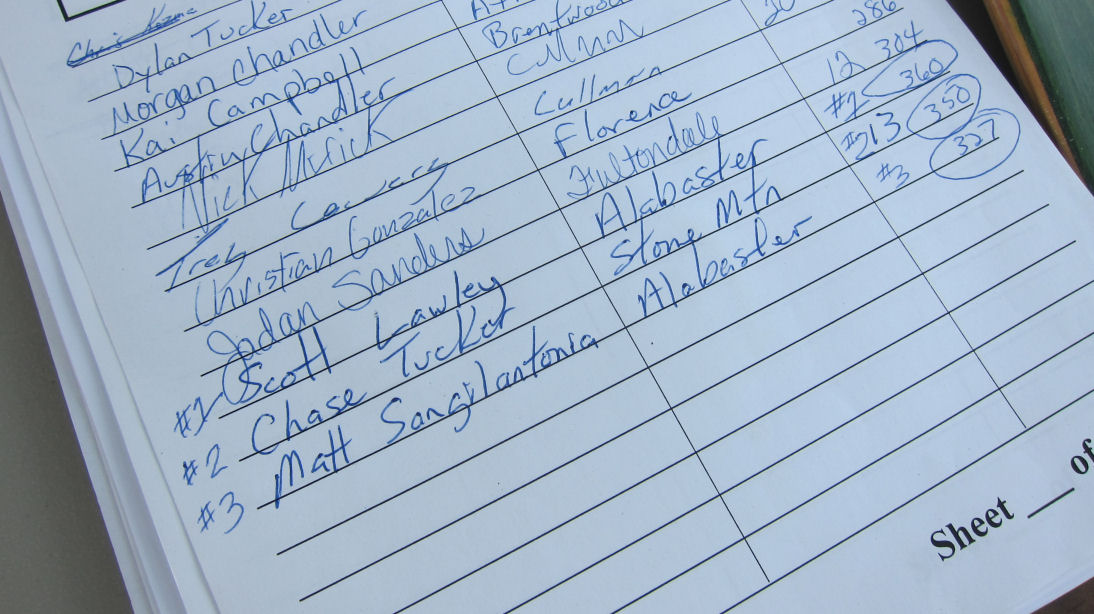 Dylan Tucker
Morgan Chandler
Kai Campbell
Austin Chandler Brentwood
Nick Myrick
Trey Cullman 20
Christian Gonzalez Florence 286
Jordan Sanders Fultondale 12 304
#1 Scott Lawley Alabaster #1 360
#2 Chase Tucker Stone Mtn #2 13 350
#3 Matt Sangilantonia Alabaster #3 327
Sheet ___ of